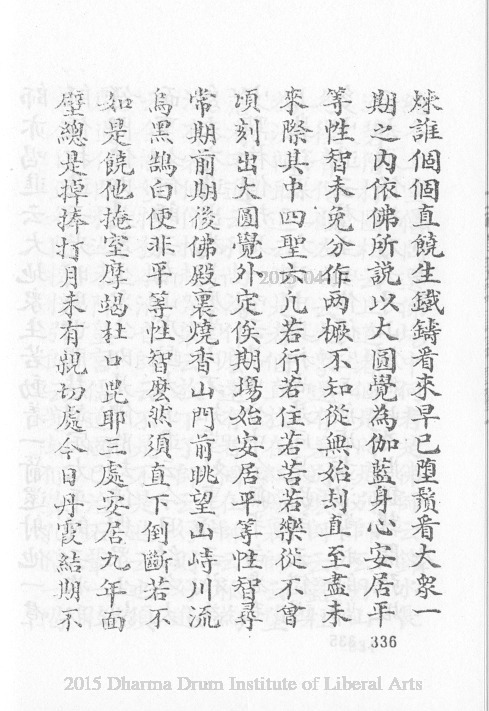 煉誰個個直饒生鐵鑄看來早已墮鬚看大眾一
期之內依佛所説以大圓覺為伽藍身心安居平
等性智未免分作两橛不知從無始刦直至盡未
來際其中四聖六凡若行若住若苦若樂從不曾
頃刻出大圓覺外定俟期塲始安居平等性智尋
常期前期後佛殿裏燒香山門前眺望山峙川流
烏黑鵠白便非平等性智麽然須直下倒斷若不
如是饒他掩室摩竭杜口毘耶三處安居九年面
壁總是掉捧打月未有親切處今日丹霞結期不
336
2015 Dharma Drum Institute of Liberal Arts